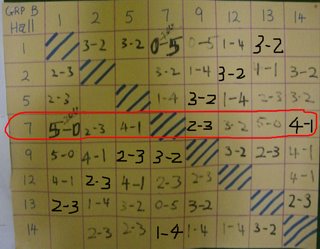 GRP B 1 2 5 7 9 12 13 14
Hall
1 3-2 3-2 0-5 0-5 1-4 3-2
2 2-3 3-2 1-4 3-2 4-1 3-2
5 2-3 1-4 3-2 1-4 2-3 3-2
7 5-0 2-3 4-1 2-3 3-2 5-0 4-1
9 5-0 4-1 2-3 3-2 3-2 2-3 4-1
12 4-1 2-3 4-1 2-3 2-3 4-1
13 2-3 1-4 3-2 0-5 3-2 2-3
14 2-3 2-3 1-4 1-4 1-4 3-2